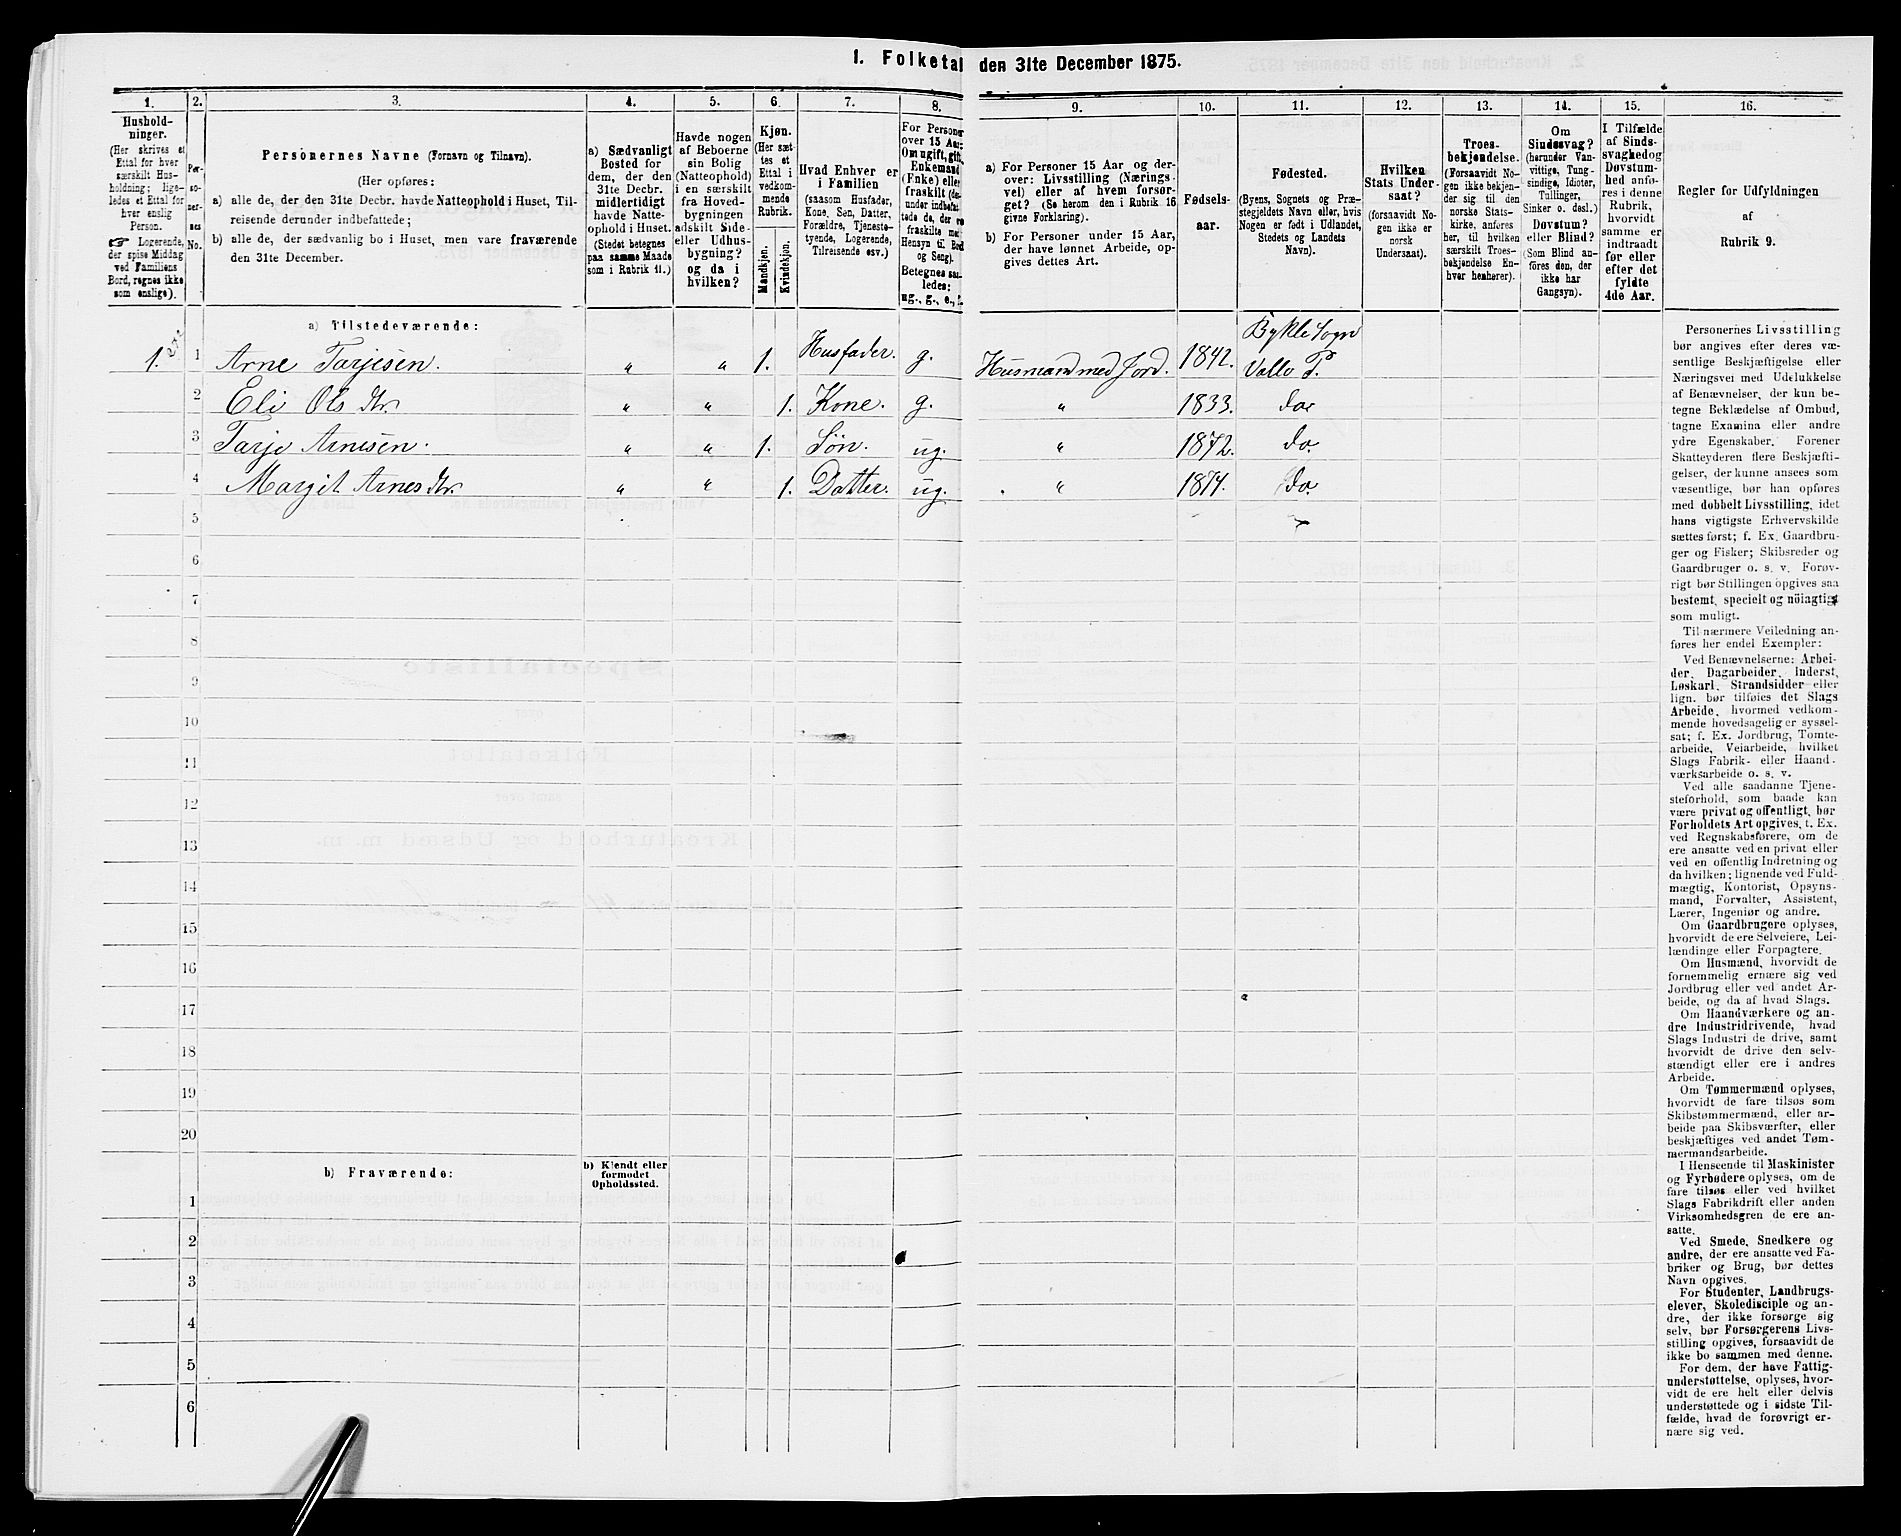 1. Folketal den 31te December 1875.
1. 2. 3. 4. 5. 6. 7. 8. 9. 10. 11. 12. 13. 14. 15. 16.
Hushold-
ninger.
(Her skrives et
Ettal for hver
særskilt Hus-
holdning; lige-
ledes et Ettal for
hver enslig
Person.
☞ Logerende,
der spise Middag
ved Familiens
Bord, regnes ikke
som enslige).
Per-
so-
ner-
nes
No.
Personernes Navne (Fornavn og Tilnavn).
(Her opføres:
a) alle de, der den 31te Decbr. havde Natteophold i Huset, Til-
reisende derunder indbefattede;
b) alle de, der sædvanlig bo i Huset, men vare fraværende
den 31te December.
a) Sædvanligt
Bosted for
dem, der den
31te Decbr.
midlertidigt
havde Natte-
ophold i Huset.
(Stedet betegnes
paa samme Maade
som i Rubrik 11.)
Havde nogen
af Beboerne
sin Bolig
(Natteophold)
i en særskilt
fra Hoved-
bygningen
adskilt Side-
eller Udhus-
bygning?
og da i
hvilken?
Kjøn.
(Her sæt-
tes et
Ettal i
vedkom-
mende
Rubrik.
Mandkjøn.
Kvindekjøn.
Hvad Enhver er
i Familien
(saasom Husfader,
Kone, Søn, Datter,
Forældre, Tjeneste-
tyende, Logerende,
Tilreisende osv.)
For Personer
over 15 Aar:
Om ugift, gift,
Enkemand
(Enke) eller
fraskilt (der-
under indbefat-
tede de, der ere
fraskilte med
Hensyn til Bord
og Seng).
Betegnes saa-
ledes:
ug., g., e., f.
a) For Personer 15 Aar og der-
over: Livsstilling (Nærings-
vei) eller af hvem forsør-
get? (Se herom den i Rubrik 16
givne Forklaring).
b) For Personer under 15 Aar,
der have lønnet Arbeide, op-
gives dettes Art.
Fødsels-
aar.
Fødested.
(Byens, Sognets og Præ-
stegjeldets Navn eller, hvis
Nogen er født i Udlandet,
Stedets og Landets
Navn).
Hvilken
Stats Under-
saat?
(forsaavidt No-
gen ikke er
norsk
Undersaat).
Troes-
bekjendelse.
(Forsaavidt No-
gen ikke bekjen-
der sig til den
norske Stats-
kirke, anføres
her, til hvilken
særskilt Troes-
bekjendelse En-
hver henhører).
Om
Sindssvag?
(herunder Van-
vittige, Tung-
sindige, Idioter,
Tullinger,
Sinker o. desl.)
Døvstum?
eller Blind?
(Som Blind an-
føres den, der
ikke har
Gangsyn).
I Tilfælde
af Sinds-
svaghed og
Døvstum-
hed anfø-
res i denne
Rubrik,
hvorvidt
samme er
indtraadt
før eller
efter det
fyldte
4de Aar.
Regler for Udfyldningen
af
Rubrik 9.
a) Tilstedeværende:
Bykle Sogn
1. 1 Arne Tarjesen. " " 1. Husfader. g. Husmand med Jord. 1842. Valle P.
2 Eli Ols Dtr. " " 1. Kone. g. " 1833. do.
3 Tarje Arnesen. " " 1. Søn. ug. " 1872. do.
4 Margit Arnes Dtr. " " 1. Datter. ug. " 1874. do.
5
6
7
8
9
10
11
12
13
14
15
16
17
18
19
20
b) Fraværende:
b) Kjendt eller
formodet
Opholdssted.
1
2
3
4
5
6
Personernes Livsstilling
bør angives efter deres væ-
sentlige Beskjæftigelse eller
Næringsvei med Udelukkelse
af Benævnelser, der kun be-
tegne Beklædelse af Ombud,
tagne Examina eller andre
ydre Egenskaber. Forener
Skatteyderen flere Beskjæfti-
gelser, der kunne ansees som
væsentlige, bør han opføres
med dobbelt Livsstilling, idet
hans vigtigste Erhvervskilde
sættes først; f. Ex. Gaardbru-
ger og Fisker; Skibsreder og
Gaardbruger o. s. v. Forøv-
rigt bør Stillingen opgives saa
bestemt, specielt og nöiagtigt
som muligt.
Til nærmere Veiledning an-
føres her endel Exempler:
Ved Benævnelserne: Arbei-
der, Dagarbeider, Inderst,
Løskarl, Strandsidder eller
lign. bør tilføies det Slags
Arbeide, hvormed vedkom-
mende hovedsagelig er syssel-
sat; f. Ex. Jordbrug, Tomte-
arbeide, Veiarbeide, hvilket
Slags Fabrik- eller Haand-
værksarbeide o. s. v.
Ved alle saadanne Tjene-
steforhold, som baade kan
være privat og offentligt, bør
Forholdets Art opgives, t. Ex.
ved Regnskabsførere, om de
ere ansatte ved en privat eller
ved en offentlig Indretning og
da hvilken; lignende ved Fuld-
mægtig, Kontorist, Opsyns-
mand, Forvalter, Assistent,
Lærer, Ingeniør og andre.
Om Gaardbrugere oplyses,
hvorvidt de ere Selveiere, Lei-
lændinge eller Forpagtere.
Om Husmænd, hvorvidt de
fornemmelig ernære sig ved
Jordbrug eller ved andet Ar-
beide, og da af hvad Slags.
Om Haandværkere og an-
dre Industridrivende, hvad
Slags Industri de drive, samt
hvorvidt de drive den selv-
stændigt eller ere i andres
Arbeide.
Om Tømmermænd oplyses,
hvorvidt de fare tilsøs som
Skibstømmermænd, eller ar-
beide paa Skibsværfter, eller
beskjæftiges ved andet Tøm-
mermandsarbeide.
I Henseende til Maskinister
og Fyrbødere oplyses, om de
fare tilsøs eller ved hvilket
Slags Fabrikdrift eller anden
Virksomhedsgren de ere an-
satte.
Ved Smede, Snedkere og
andre, der ere ansatte ved Fa-
briker og Brug, bør dettes
Navn opgives.
For Studenter, Landbrugs-
elever, Skoledisciple og an-
dre, der ikke forsørge sig
selv, bør Forsørgerens Livs-
stilling opgives, forsaavidt de
ikke bo sammen med denne.
For dem, der have Fattig-
understøttelse, oplyses, hvor-
vidt de ere helt eller delvis
understøttede og i sidste Til-
fælde, hvad de forøvrigt er-
nære sig ved.